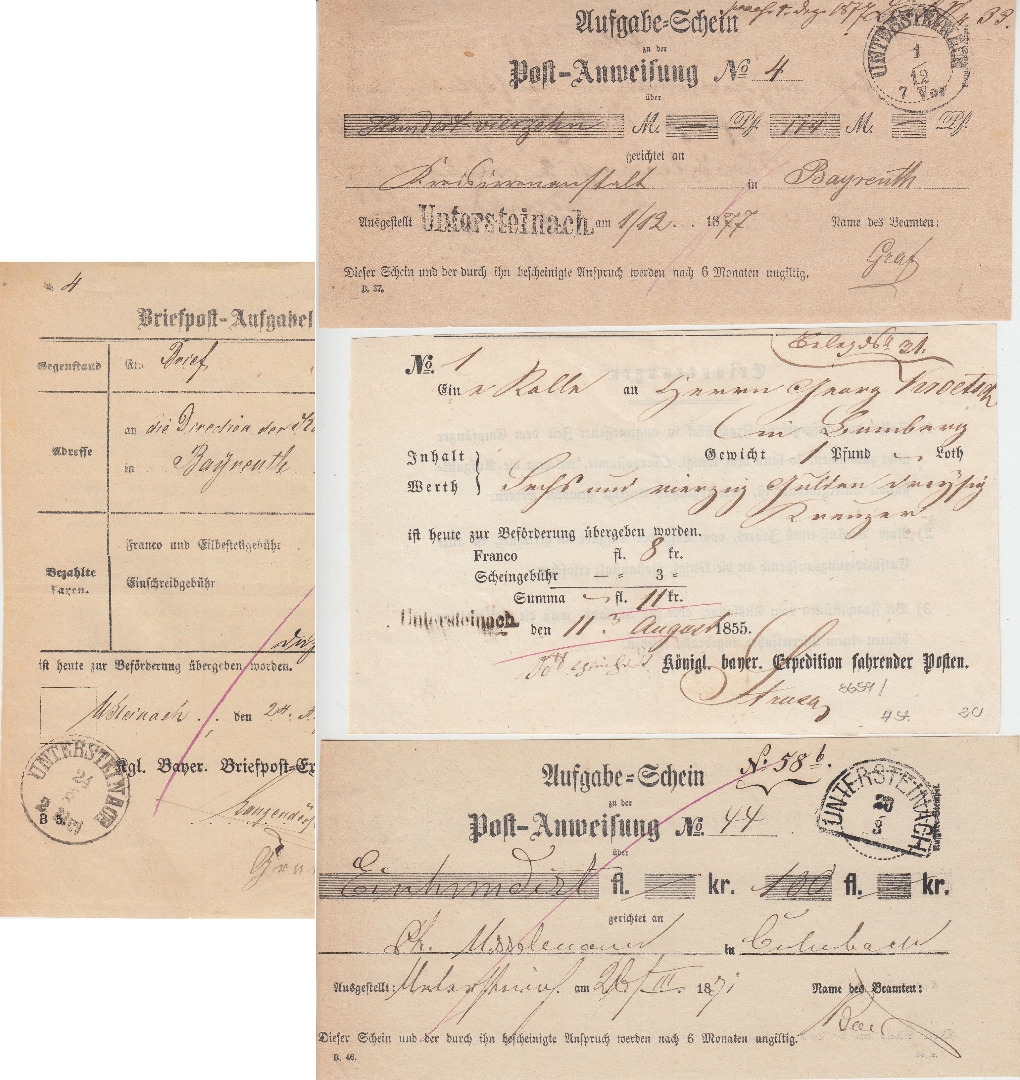 Aufgabe-Schein
zu der
Post-Anweisung No 4
über
UNTERSTEINACH
1
12
7 Vor
Hundert vierzehn M. — Pf. 114 M. Pf.
gerichtet an
Kreisirrenanstalt in Bayreuth
Ausgestellt Untersteinach am 1/12 1877 Name des Beamten:
Graf
Dieser Schein und der durch ihn bescheinigte Anspruch werden nach 6 Monaten ungiltig.
B. 37.
4
Briefpost-Aufgabe
Gegenstand
Ein Brief
Adresse
an die Direction der
in Bayreuth
Bezahlte
Taxen.
Franco und Eilbestellgebühr
Einschreibgebühr
ist heute zur Beförderung übergeben worden.
den
UNTERSTEINACH
Kgl. Bayer. Briefpost-Ex
B 5.
No. 1
Eine Rolle an Herrn Georg
in Bamberg
Inhalt
Werth
Gewicht 1 Pfund Loth
Sechs und vierzig Gulden dreyßig
Kreuzer
ist heute zur Beförderung übergeben worden.
Franco fl. 8 kr.
Scheingebühr — " 3 "
Summa fl. 11 kr.
Untersteinach
den 11. August 1855.
Königl. bayer. Expedition fahrender Posten.
20
Aufgabe-Schein
N. 58 b.
zu der
Post-Anweisung No. 44
über
UNTERSTEINACH
Einhundert fl. — kr. 100 fl. kr.
gerichtet an
in Culmbach
Ausgestellt: am 28/III. 1871 Name des Beamten:
Dieser Schein und der durch ihn bescheinigte Anspruch werden nach 6 Monaten ungiltig.
B. 46.